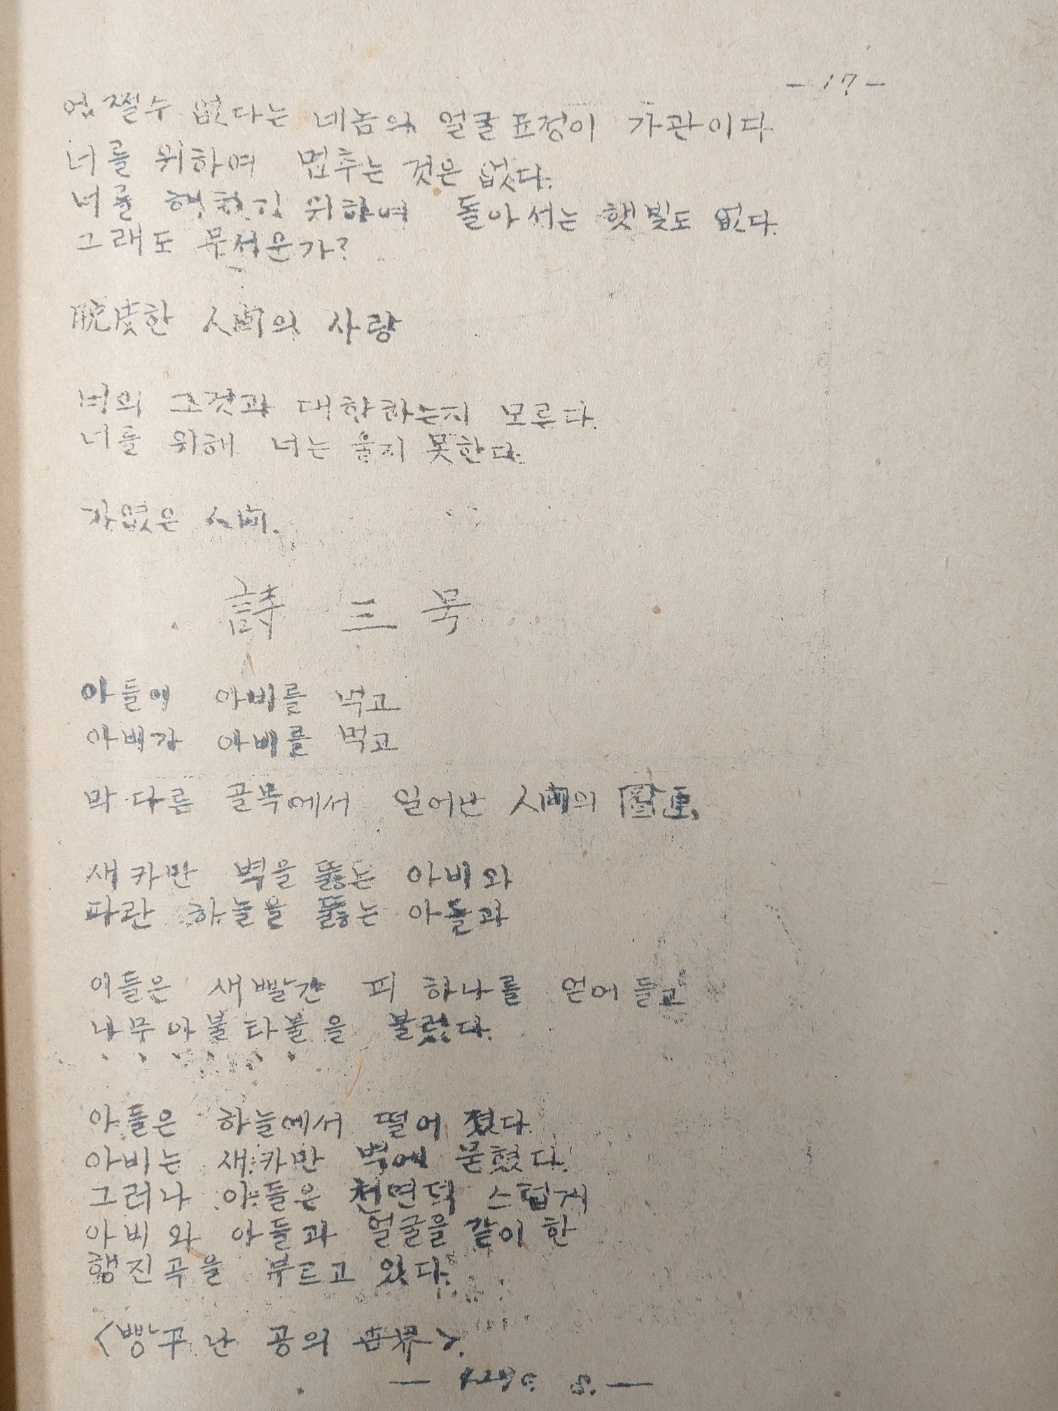 - 17 -
어쩔수 없다는 네놈의 얼굴표정이 가관이다
너를 위하여 멈추는 것은 없다.
너를 위하여 돌아서는 햇빛도 없다.
그래도 무서운가?
脫皮한 人間의 사랑
너의 그것과 대항하는지 모루다.
너를 위해 너는 울지 못한다.
가엾은 人間.
詩 三 묵
아들이 아비를 먹고
아비가 아비를 먹고
막다른 골목에서 일어난 人間의
새카만 벽을 뚫는 아비와
파란 하늘을 뚫는 아들과
이들은 새빨간 피 하나를 얻어 들고
나무아불타불을 불렀다.
아들은 하늘에서 떨어 졌다.
아비는 새카만 벽에 묻혔다.
그러나 아들은 천연덕 스럽게
아비와 아들과 얼굴을 같이 한
행진곡을 부르고 있다.
<빵꾸난 공의 世界>.